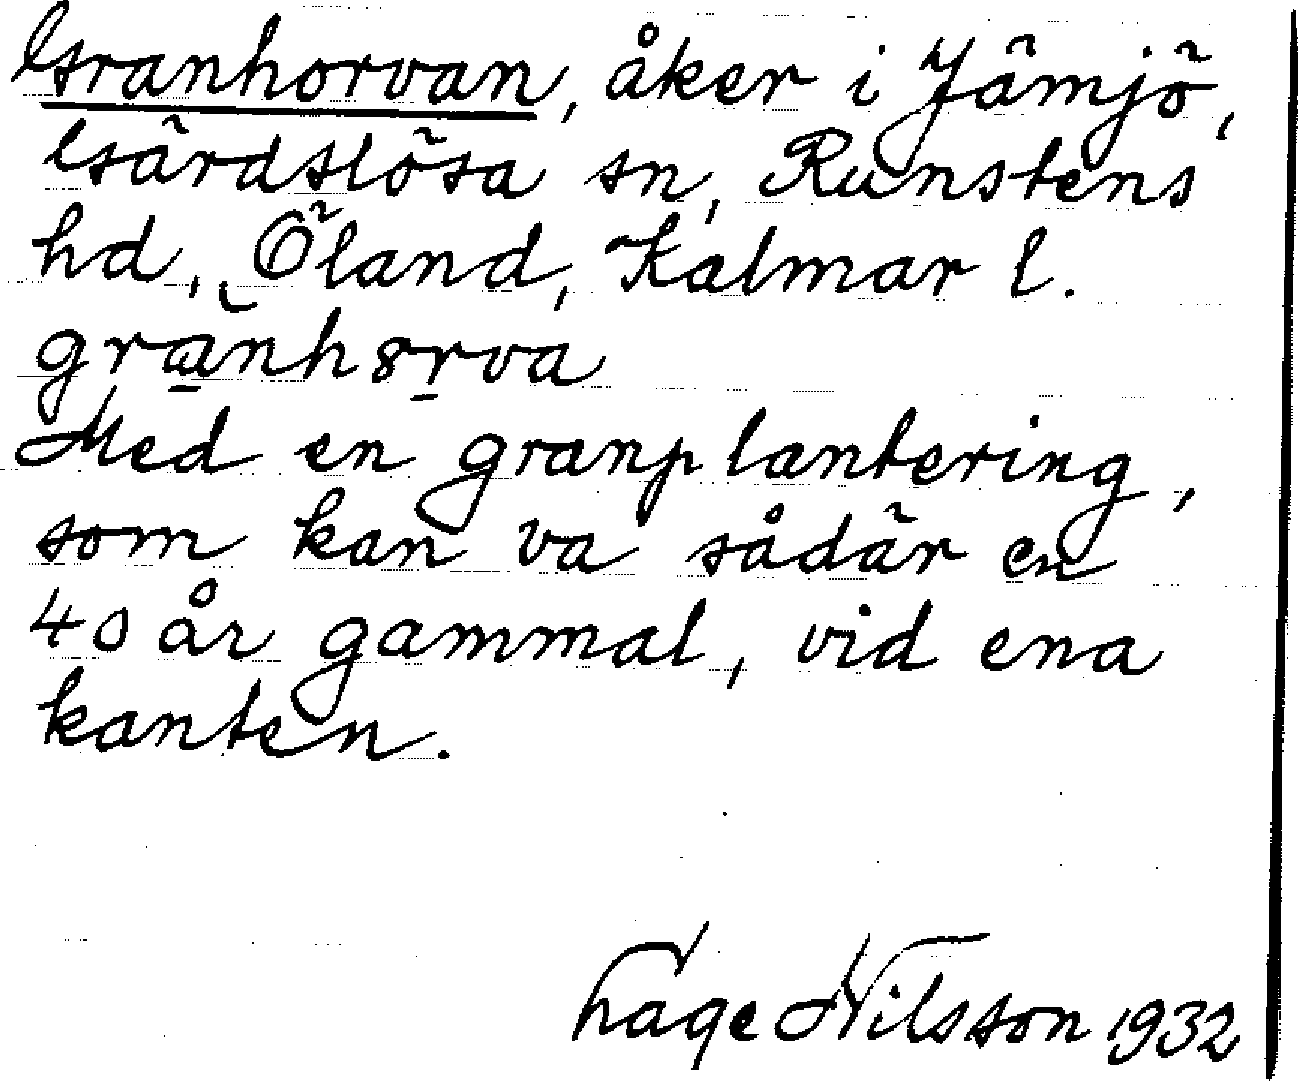 Granhorvan, åker i Jämjö,
Gärdslösa sn, Runstens
hd, Öland, Kalmar l.
gra̱nh8ṟva
Med en granplantering,
som kan va sådär en
40 år gammal, vid ena
kanten.
Lage Nilsson 1932